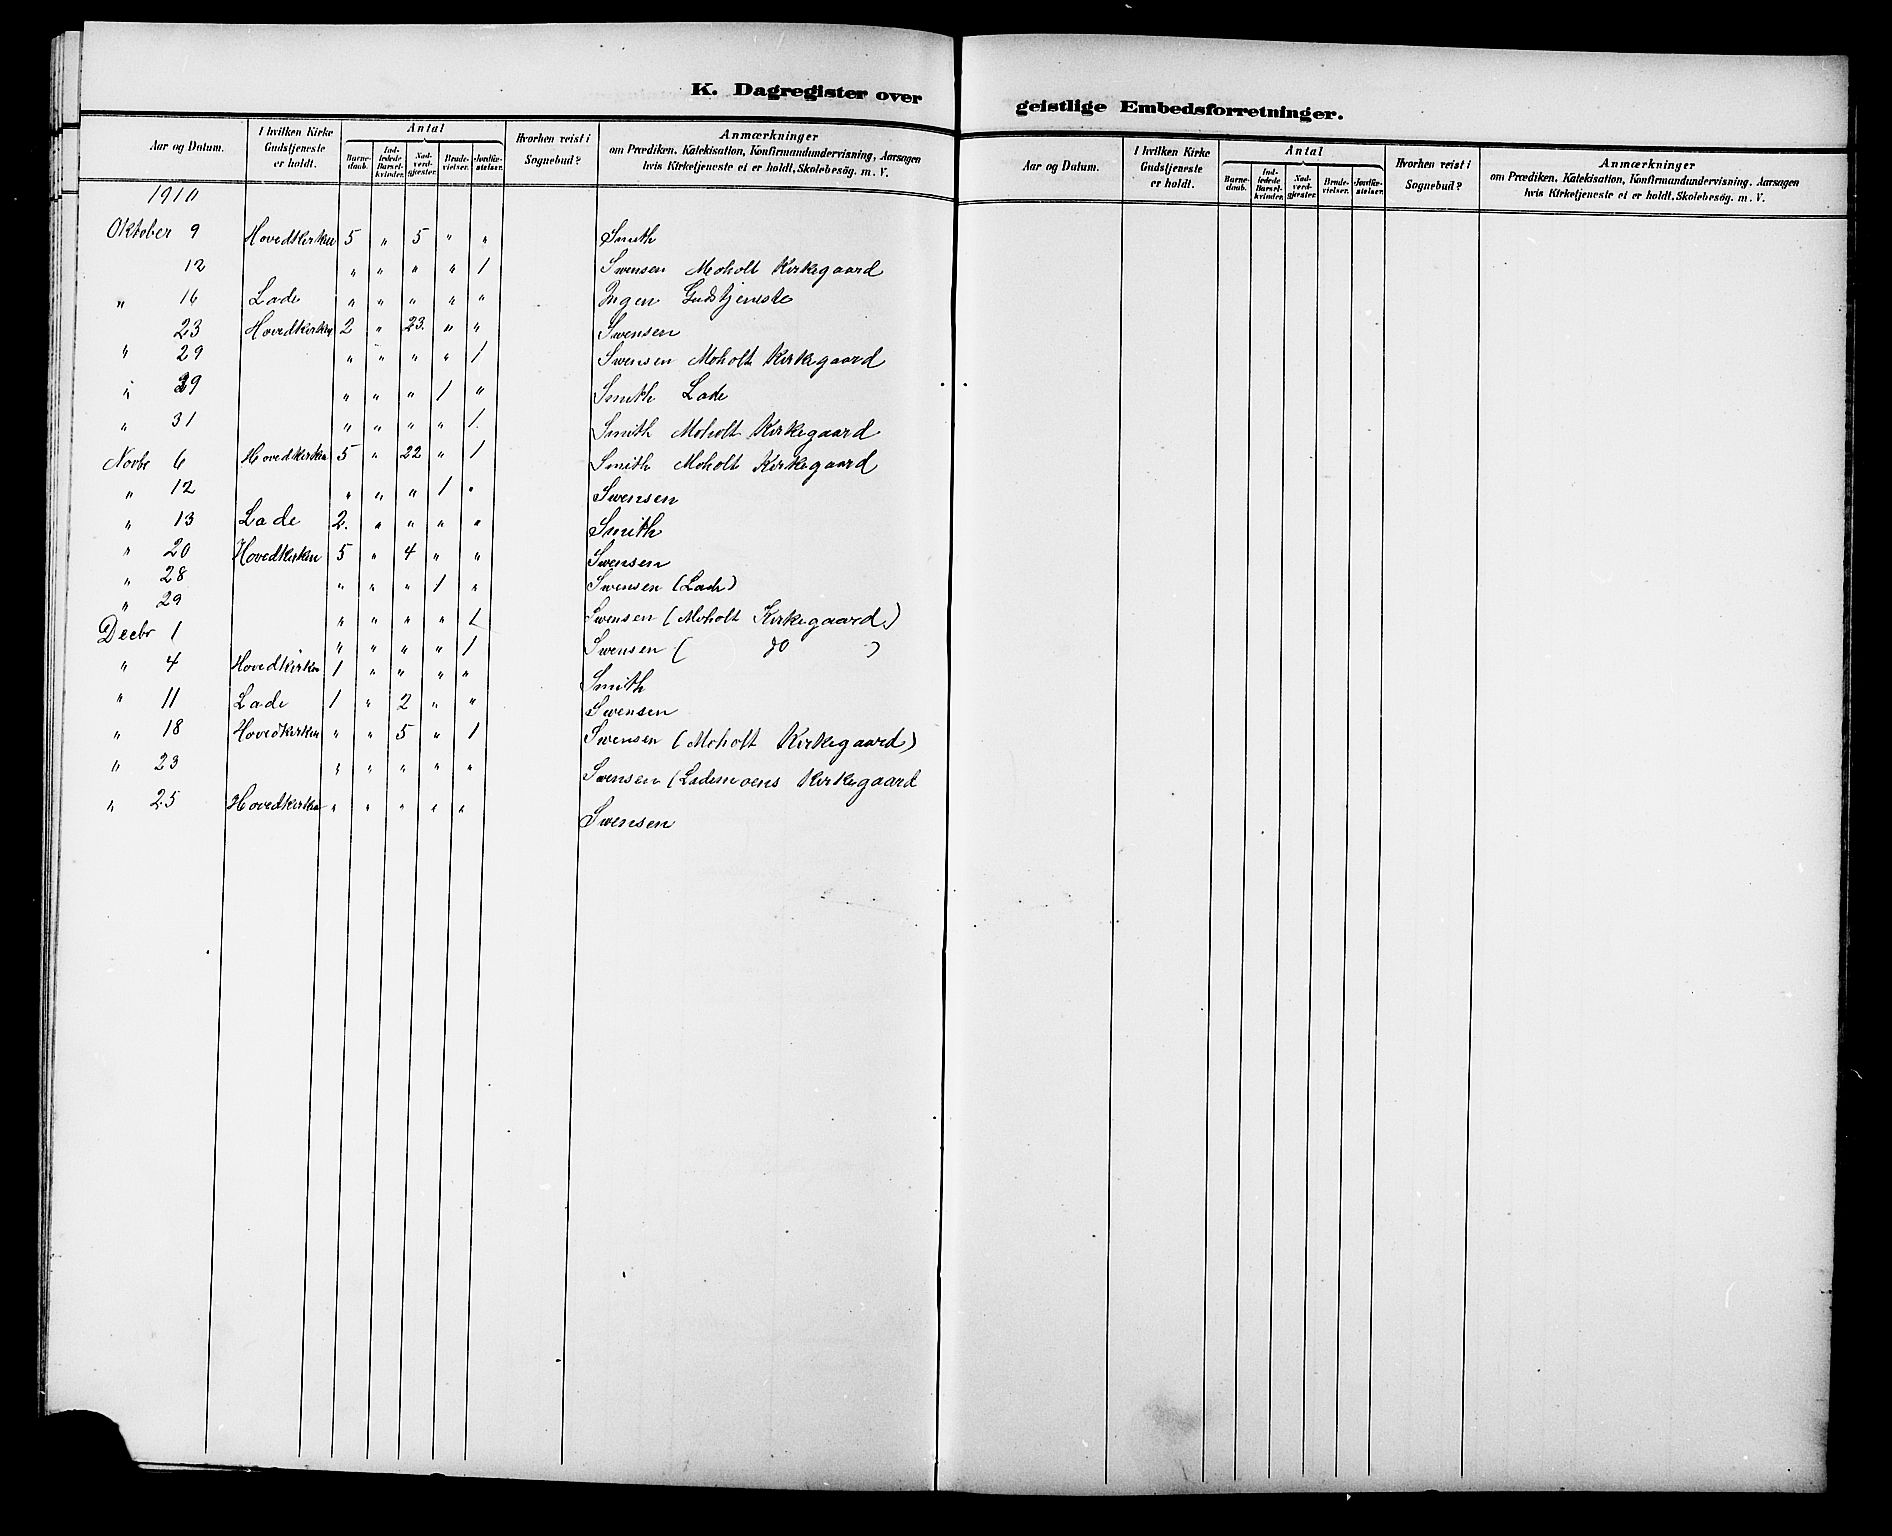 K. Dagregister over
Aar og Datum. I hvilken Kirke Gudstjeneste er holdt. Antal Barne-daab. Ind-ledede Barsel-kvinder. Nad-verd-gjester. Brude-vielser. Jordfæ-stelser. Hvorhen reist i Sognebud? Anmærkninger om Prædiken, Katekisation, Konfirmandundervisning, Aarsagen hvis Kirketjeneste ei er holdt, Skolebesög. m. V.
1910
Oktober 9 Hovedkirken 5 " 5 " " Smith
12 " " " " 1 Swensen Moholt Kirkegaard
" 16 Lade " " " " " Ingen Gudstjeneste
23 Hovedkirken 2 " 23. " " Swensen
" 29 " " " " 1 Swensen Moholt Kirkegaard
" 29 " " " 1 " Smith Lade
" 31 " " " " 1. Smith Moholt Kirkegaard
Novbr 6 Hovedkirken 5 " 22 " 1 Smith Moholt Kirkegaard
" 12 " " " 1 " Swensen
" 13 Lade 2. " " " " Smith
" 20 Hovedkirken 5 " 4 " " Swensen
" 28 " " " 1 " Swensen (Lade)
" 29 " " " " 1 Swensen (Moholt Kirkegaard)
Decbr 1 " " " " 1 Swensen ( do )
" 4 Hovedkirken 1 " " " " Smith
" 11 Lade 1 " 2 " " Swensen
" 18 Hovedkirken " " 5 " 1 Swensen (Moholt Kirkegaard)
" 23 " " " " " Swensen (Lademoens Kirkegaard
" 25 Hovedkirken " " " " " Swensen
geistlige Embedsforretninger.
Aar og Datum. I hvilken Kirke Gudstjeneste er holdt. Antal Barne-daab. Ind-ledede Barsel-kvinder. Nad-verd-gjester. Brude-vielser. Jordfæ-stelser. Hvorhen reist i Sognebud? Anmærkninger om Prædiken, Katekisation, Konfirmandundervisning, Aarsagen hvis Kirketjeneste ei er holdt, Skolebesög. m. V.